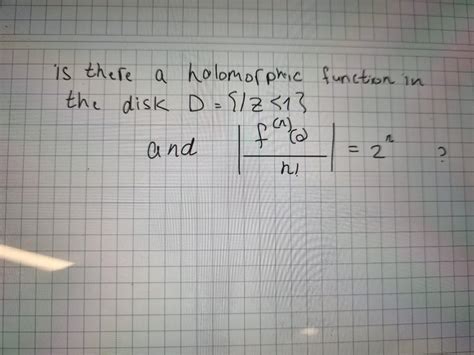 is there a holomorphic function in
the disk D = {/z<1}
and |f^(n)(0)/n!| = 2^n ?